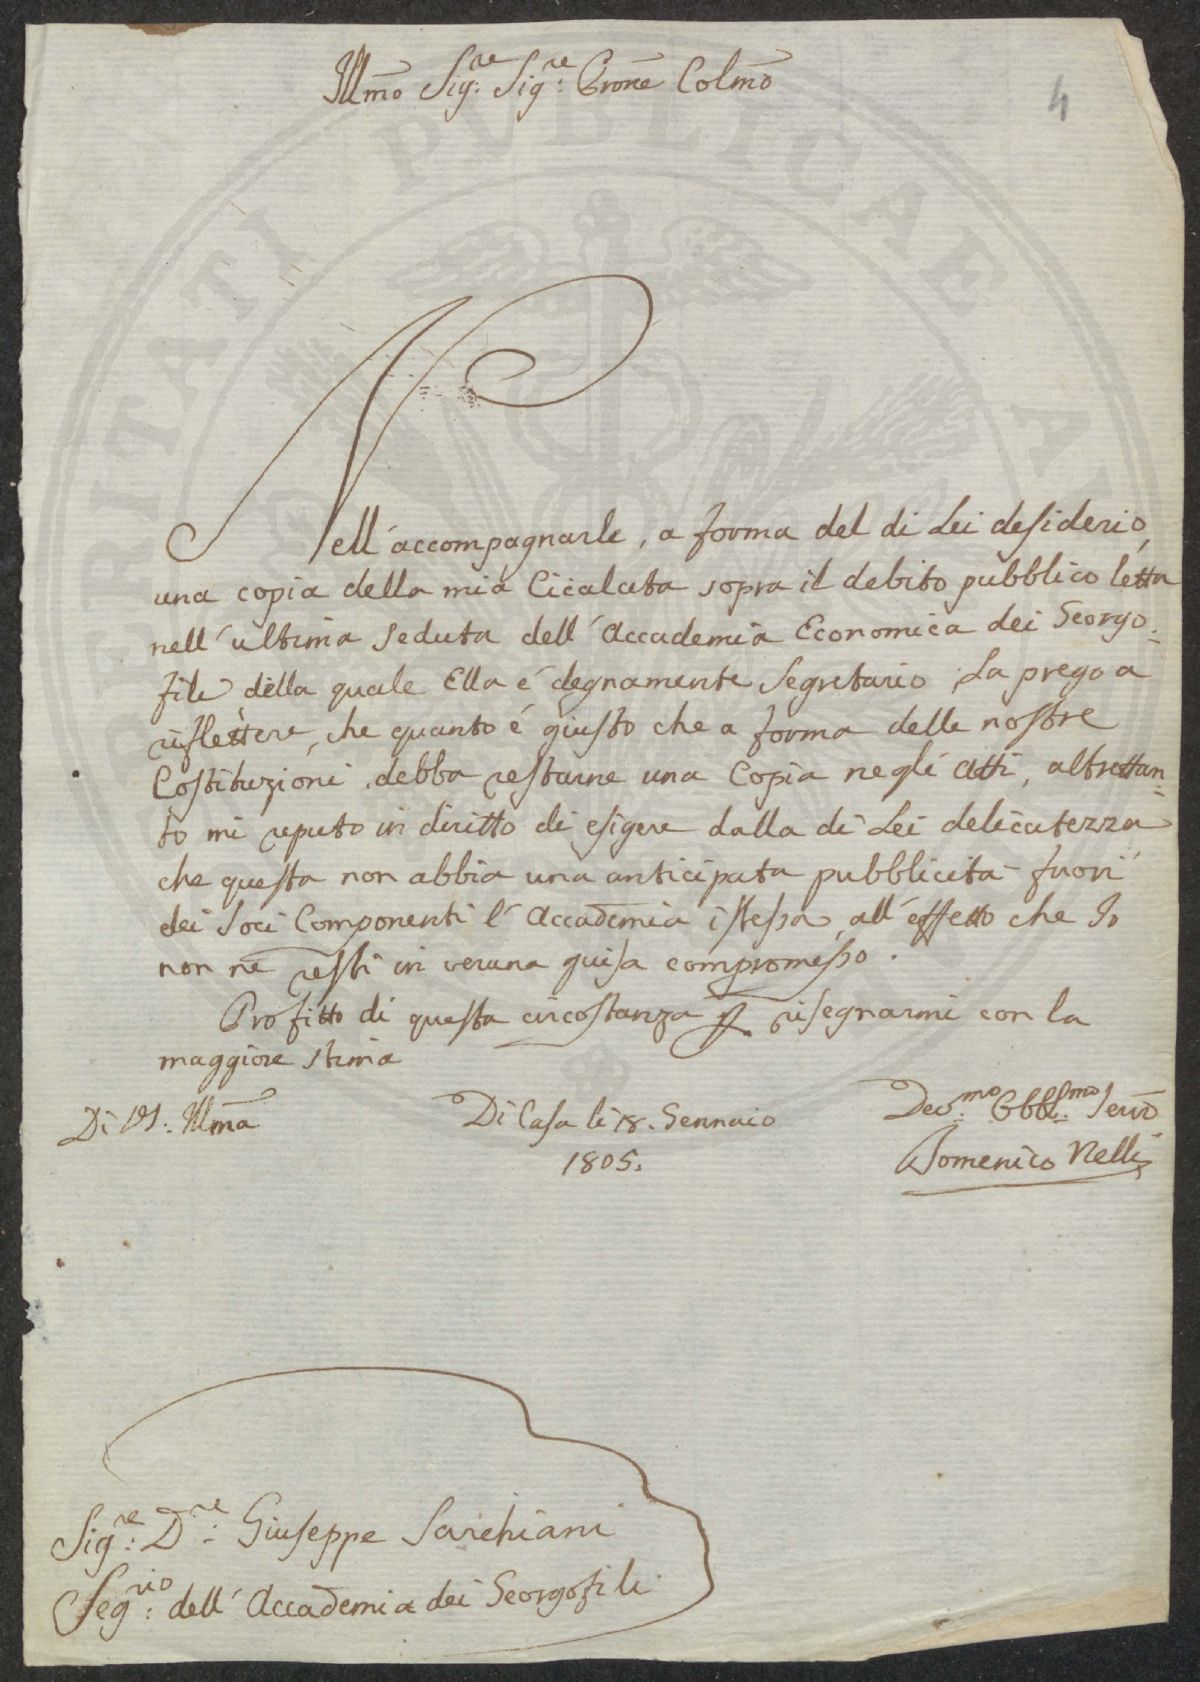 Illmo Sigre: Sigre: Prone Colmo
4
Nell'accompagnarle, a forma del di Lei desiderio,
una copia della mia Cicalata sopra il debito pubblico letta
nell'ultima seduta dell'Accademia Economica dei Georgo=
fili della quale Ella é degnamente Segretario, La prego a
riflettere, che quanto é giusto che a forma delle nostre
Costituzioni debba restarne una Copia negli Atti, altrettan=
to mi reputo in diritto di esigere dalla di Lei delicatezza
che questa non abbia una anticipata pubblicità fuori
dei Soci Componenti l'Accademia istessa, all'effetto che Io
non ne resti in veruna guisa compromesso.
Profitto di questa circostanza p risegnarmi con la
maggiore stima
Di VS: Illma
Di Casa li 18. Gennaio
1805.
Devmo: Obblmo: Servo
Domenico Nelli
Sigre: Dre: Giuseppe Sarchiani
Segrio: dell'Accademia dei Georgofili
PUBLICAE